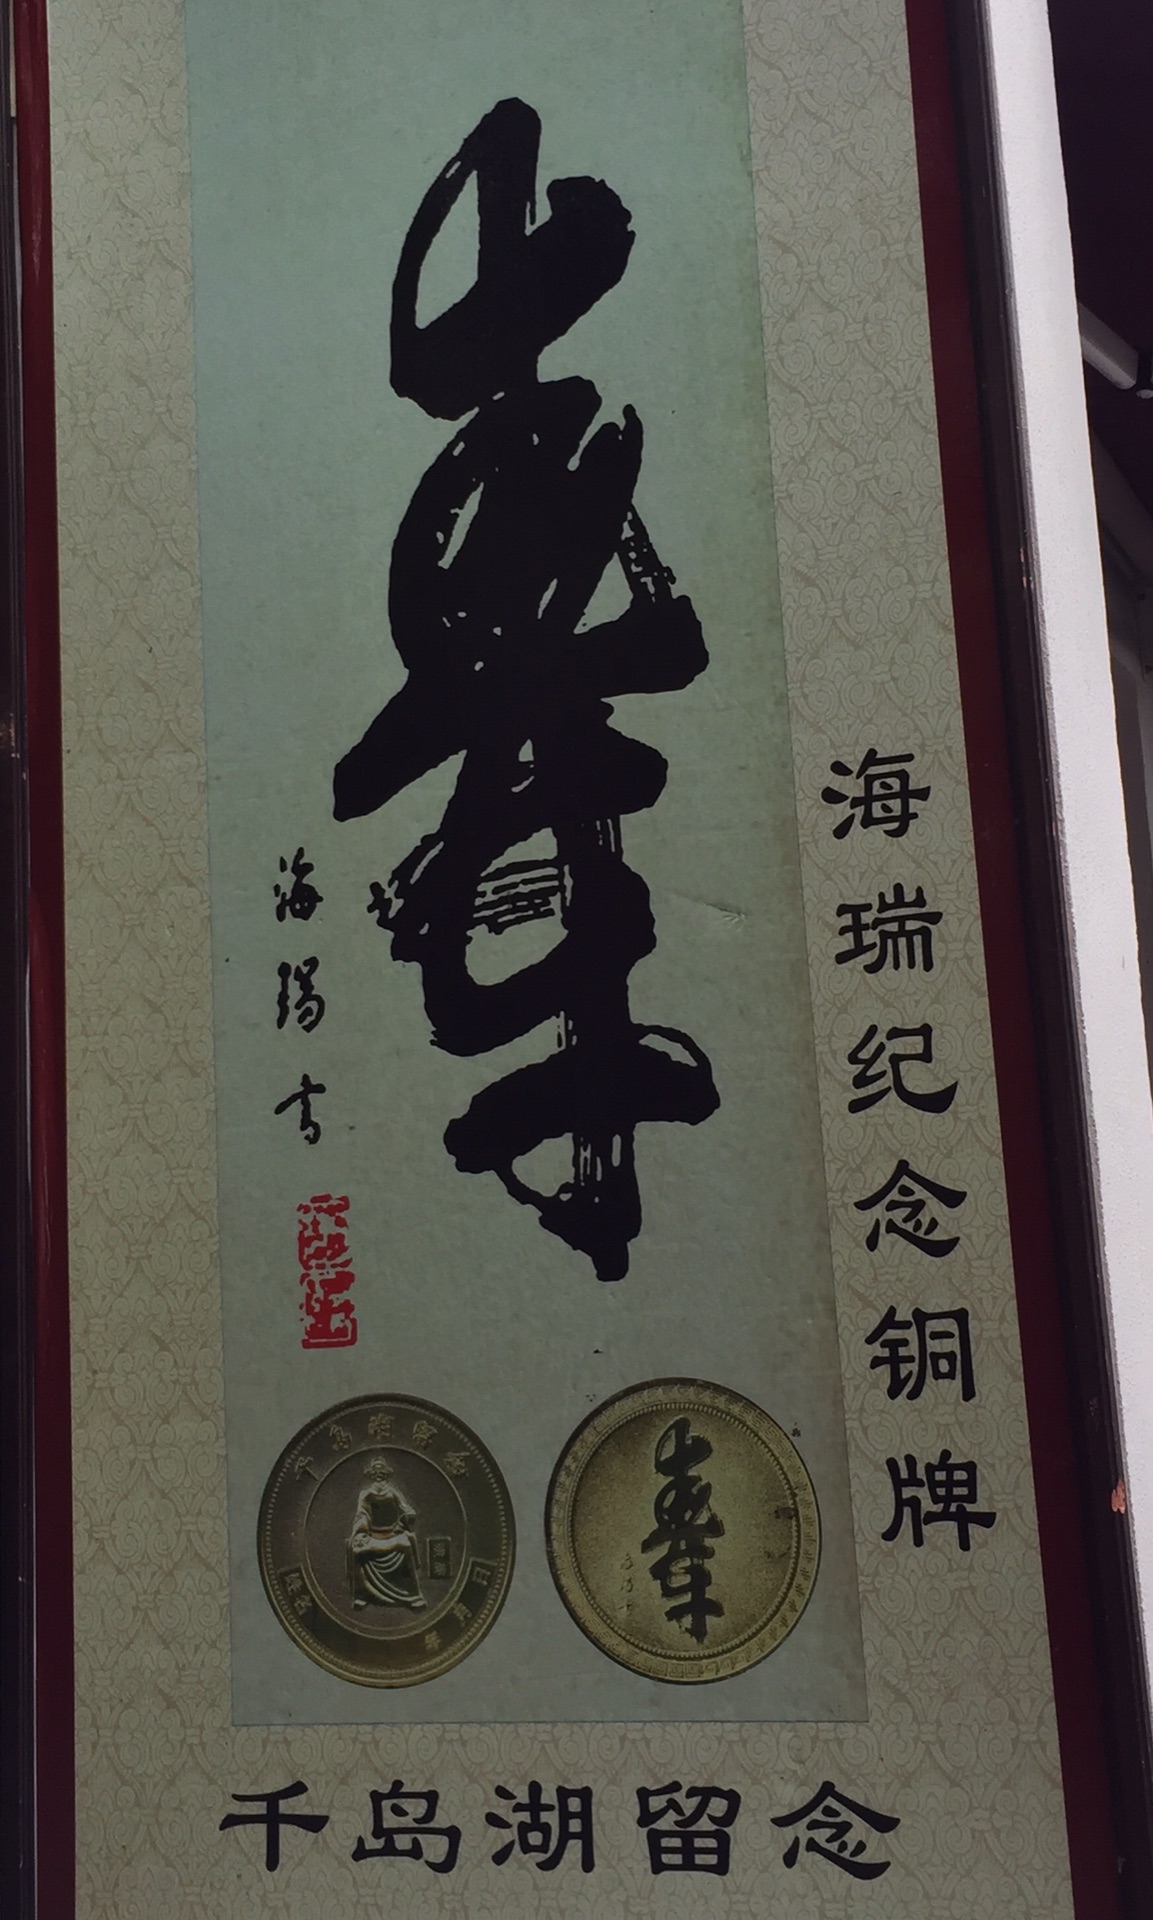 壽
海瑞書
海瑞纪念铜牌
千岛湖留念